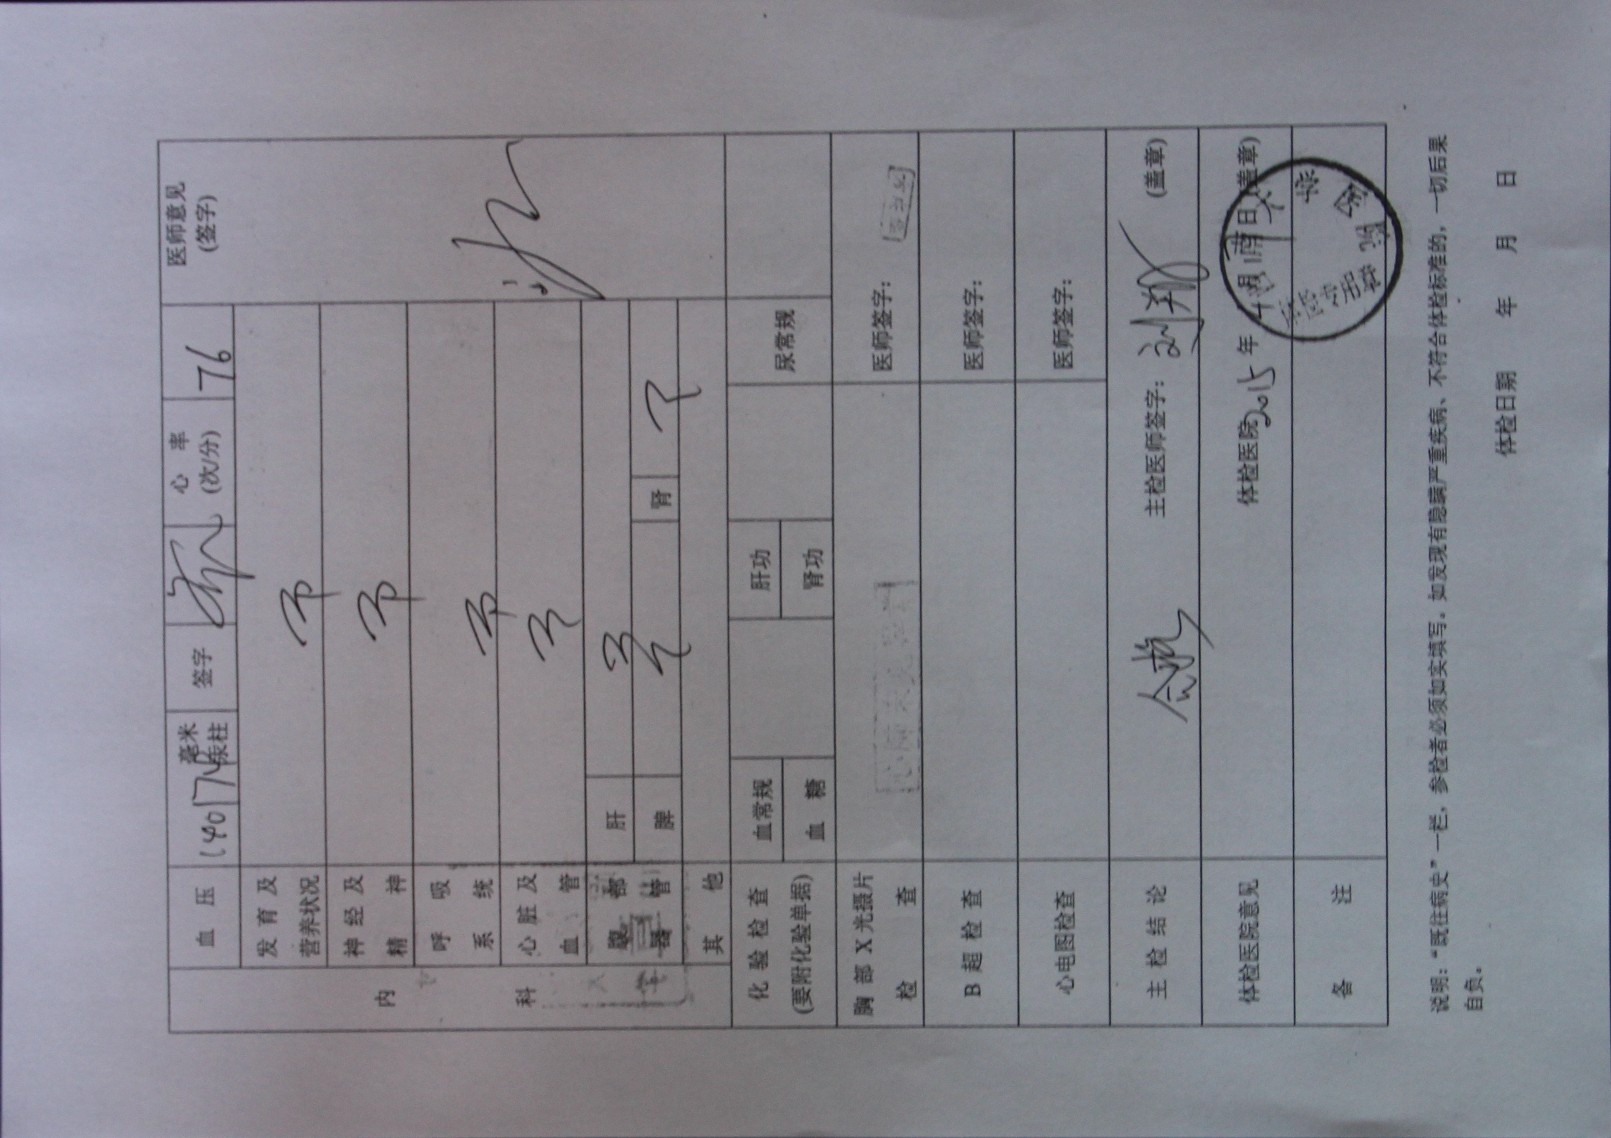 血 压 140/74 毫米汞柱 签字 心 率 (次/分) 76 医师意见 (签字)
内 科
发 育 及 营养状况
神 经 及 精 神
呼 吸 系 统
心 脏 及 血 管
腹 部 器 官 肝
脾 肾
其 他
化 验 检 查 (要附化验单据) 血常规 肝功 尿常规
血 糖 肾功
胸 部 X 光摄片 检 查 心肺未见异常 医师签字:
B 超 检 查 医师签字:
心电图检查 医师签字:
主 检 结 论 合格 主检医师签字: (盖章)
体检医院意见 体检医院 2015 年 月 日 (盖章)
备 注
说明:“既往病史”一栏，参检者必须如实填写。如发现有隐瞒严重疾病、不符合体检标准的，一切后果
自负。
体检日期 年 月 日